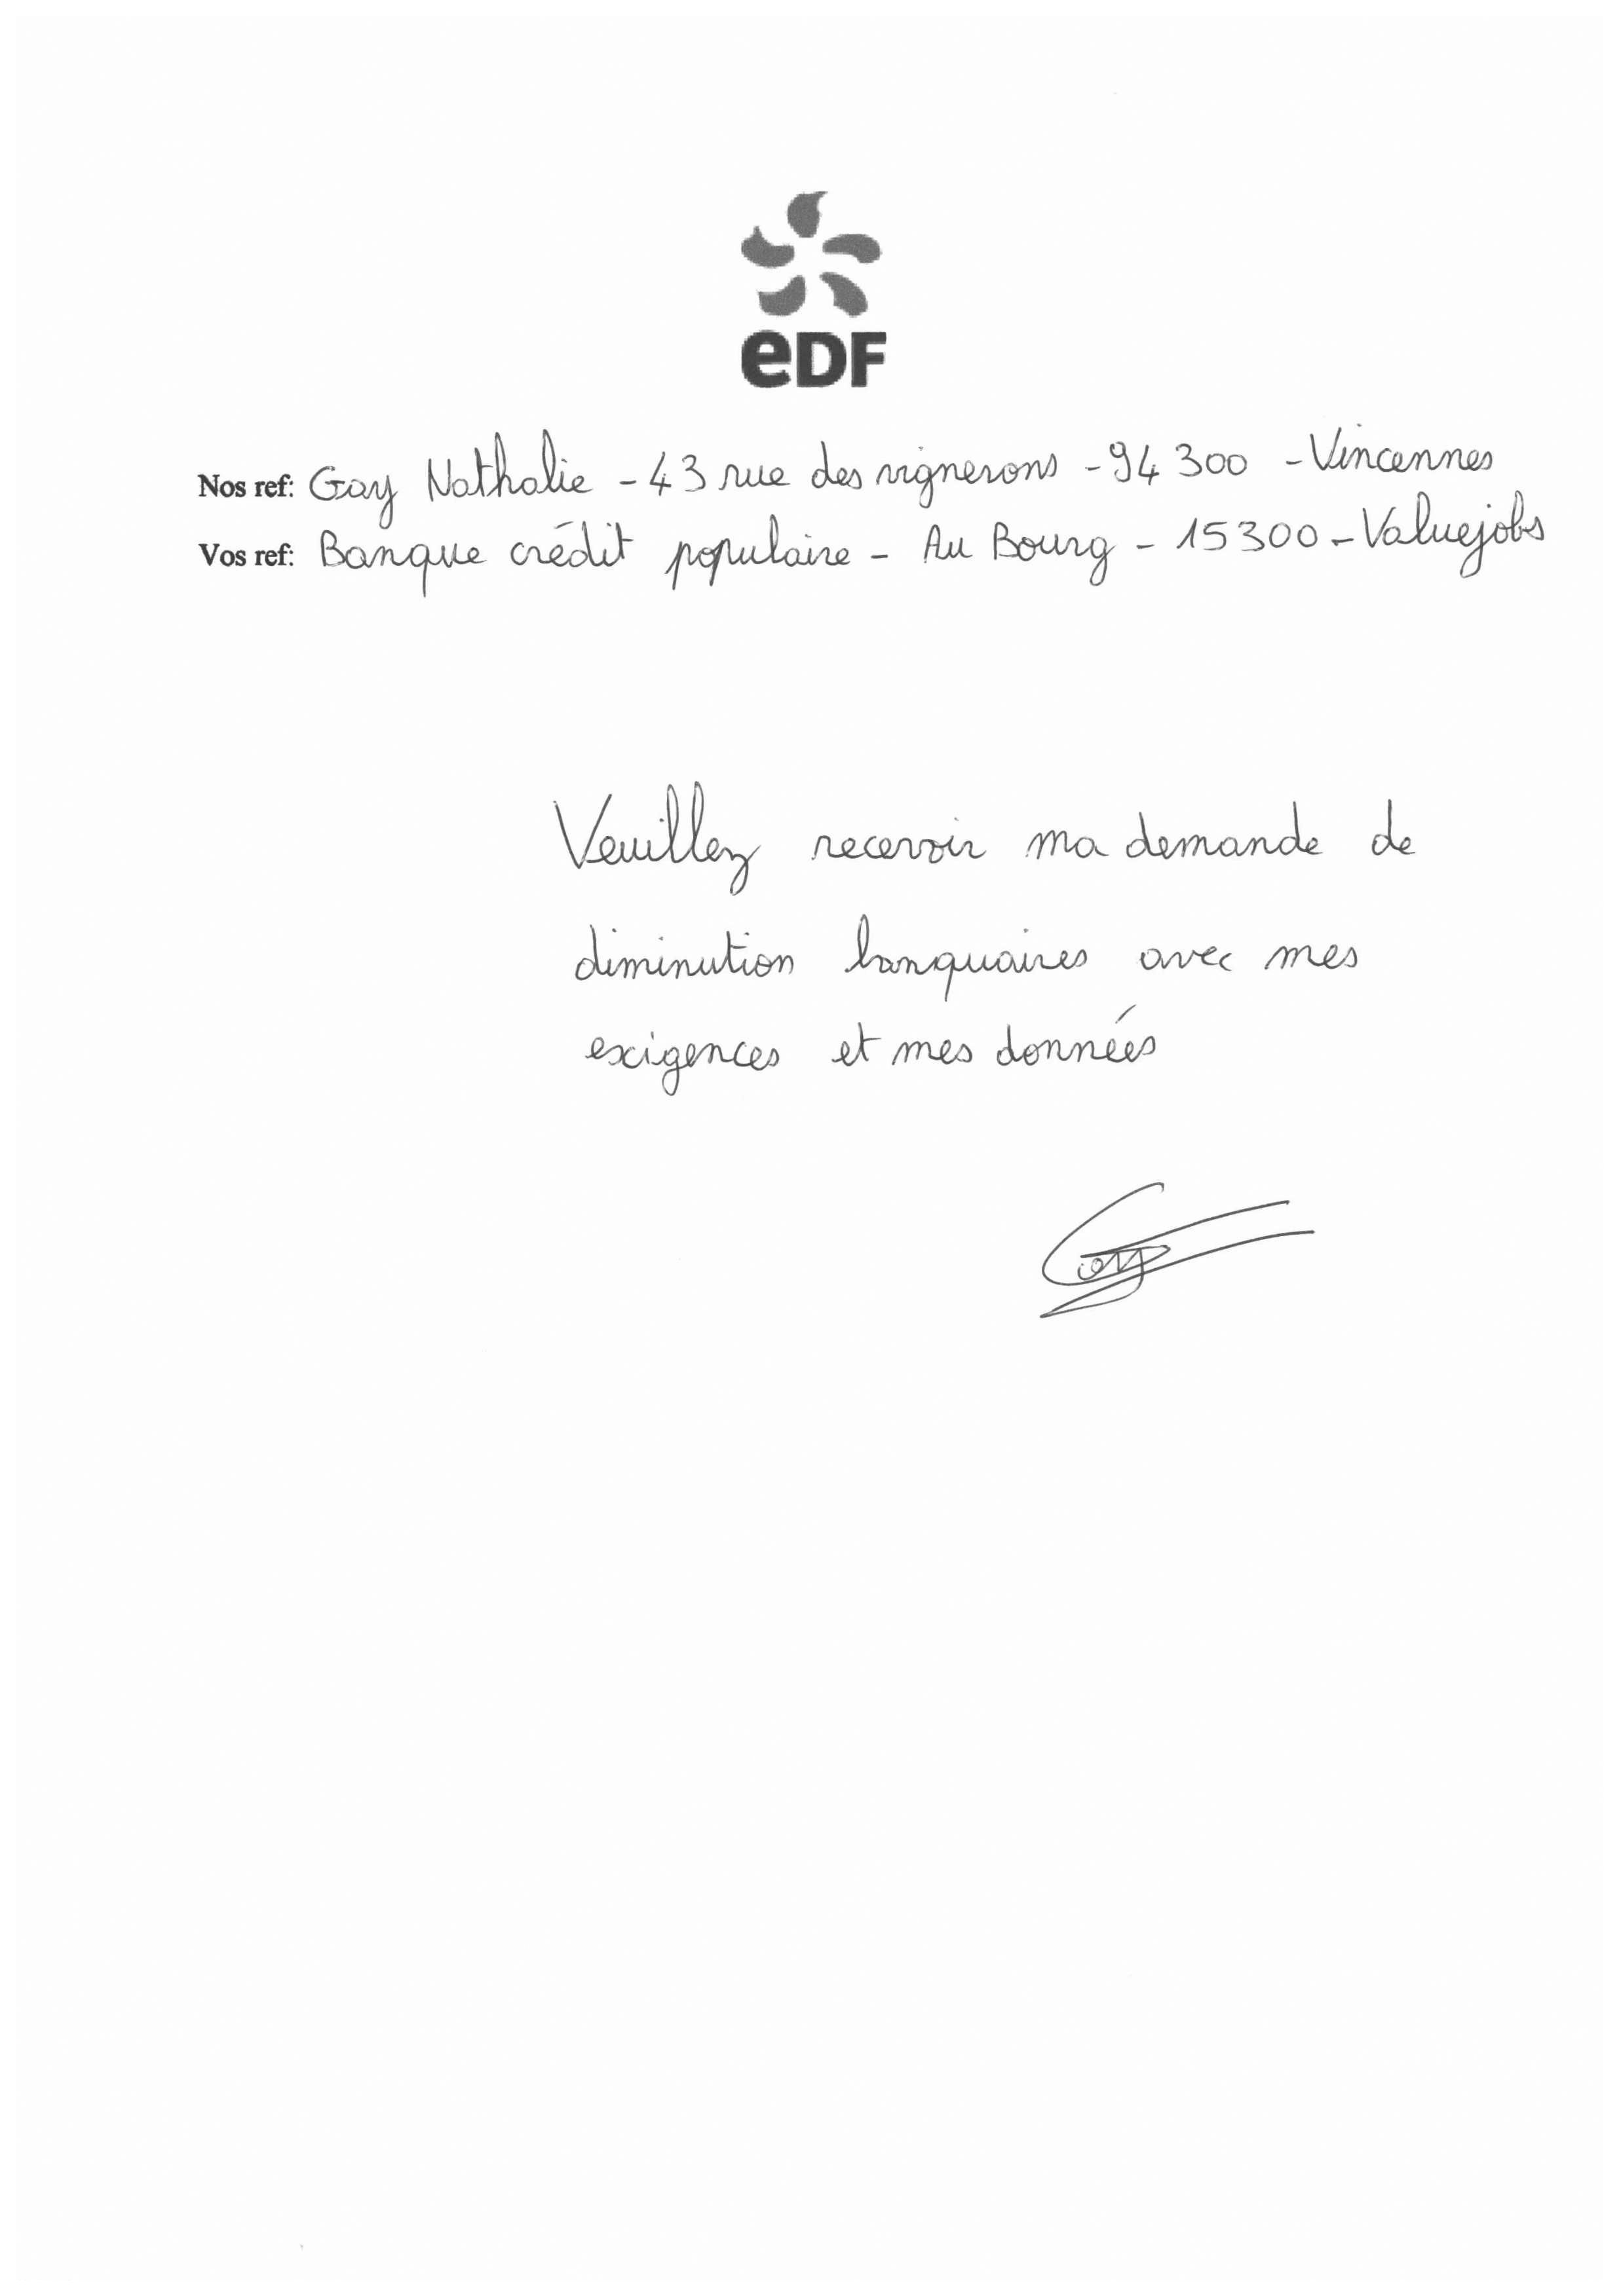 eDF
Nos ref: Gay Nathalie - 43 rue des vignerons - 94 300 - Vincennes
Vos ref: Banque crédit populaire - Au Bourg - 15300 - Valuejobs
Veuillez recevoir ma demande de
diminution banquaires avec mes
exigences et mes données
Gay